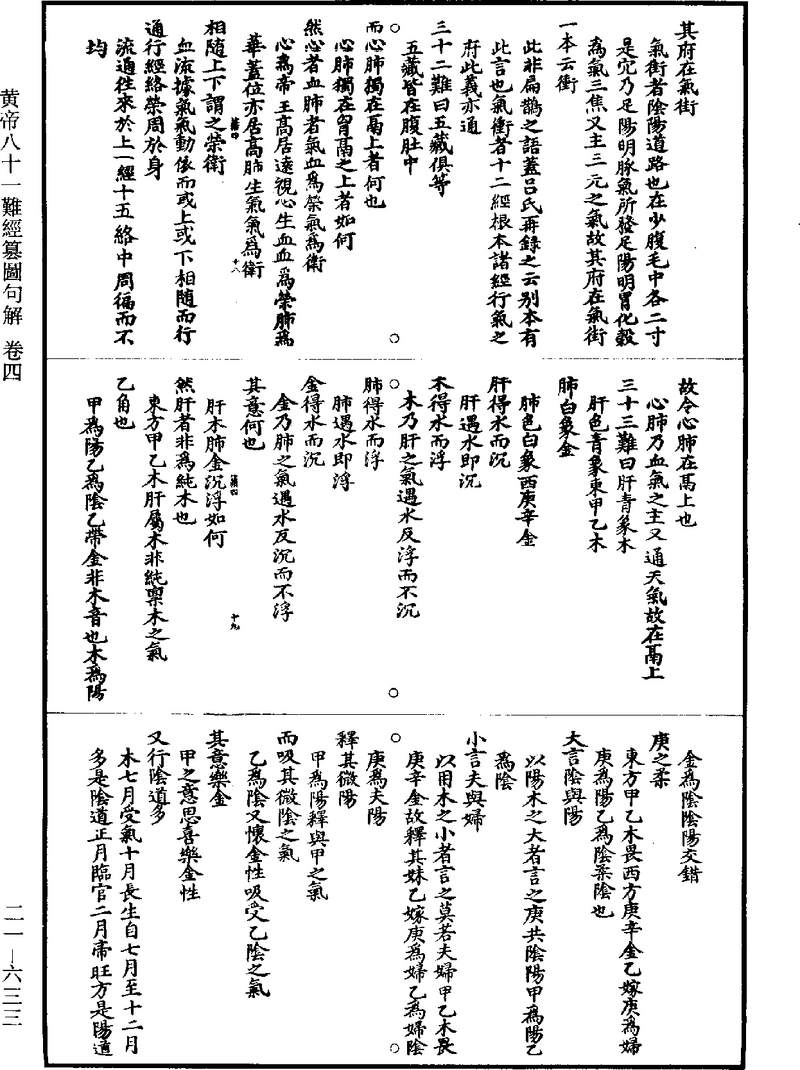 其府在氣街
氣街者陰陽道路也在少腹毛中各二寸
是穴乃足陽明脉氣所發足陽明胃化穀
爲氣三焦又主三元之氣故其府在氣街
一本云衝
此非扁鵲之語蓋吕氏再錄之云别本有
此言也氣衝者十二經根本諸經行氣之
府此義亦通
三十二難曰五藏俱等
五藏皆在腹肚中
而心肺獨在鬲上者何也
心肺獨在胷鬲之上者如何
然心者血肺者氣血爲榮氣爲衛
心爲帝王髙居逺視心生血血爲榮肺爲
華蓋位亦居髙肺生氣氣爲衛
第四 十八
相隨上下謂之榮衛
血流據氣氣動依而或上或下相隨而行
通行經絡榮周於身
流通往來於上一經十五絡中周徧而不
均
故令心肺在鬲上也
心肺乃血氣之主又通天氣故在鬲上
三十三難曰肝青象木
肝色青象東甲乙木
肺白象金
肺色白象西庚辛金
肝得水而沉
肝遇水即沉
木得水而浮
木乃肝之氣遇水反浮而不沉
肺得水而浮
肺遇水即浮
金得水而沉
金乃肺之氣遇水反沉而不浮
其意何也
肝木肺金沉浮如何
第四 十九
然肝者非爲純木也
東方甲乙木肝屬木非純稟木之氣
乙角也
甲爲陽乙爲陰乙帶金非木音也木爲陽
金爲陰陰陽交錯
庚之柔
東方甲乙木畏西方庚辛金乙嫁庚爲婦
庚爲陽乙爲陰柔陰也
大言陰與陽
以陽木之大者言之庚共陰陽甲爲陽乙
爲陰
小言夫與婦
以用木之小者言之莫若夫婦甲乙木畏
庚辛金故釋其妹乙嫁庚爲婦乙爲婦陰
庚爲夫陽
釋其微陽
甲爲陽釋與甲之氣
而吸其微陰之氣
乙爲陰又懷金性吸受乙陰之氣
其意樂金
甲之意思喜樂金性
又行陰道多
木七月受氣十月長生自七月至十二月
多是陰道正月臨官二月帝旺方是陽道
黄帝八十一難經纂圖句解 卷四
二一—六三三